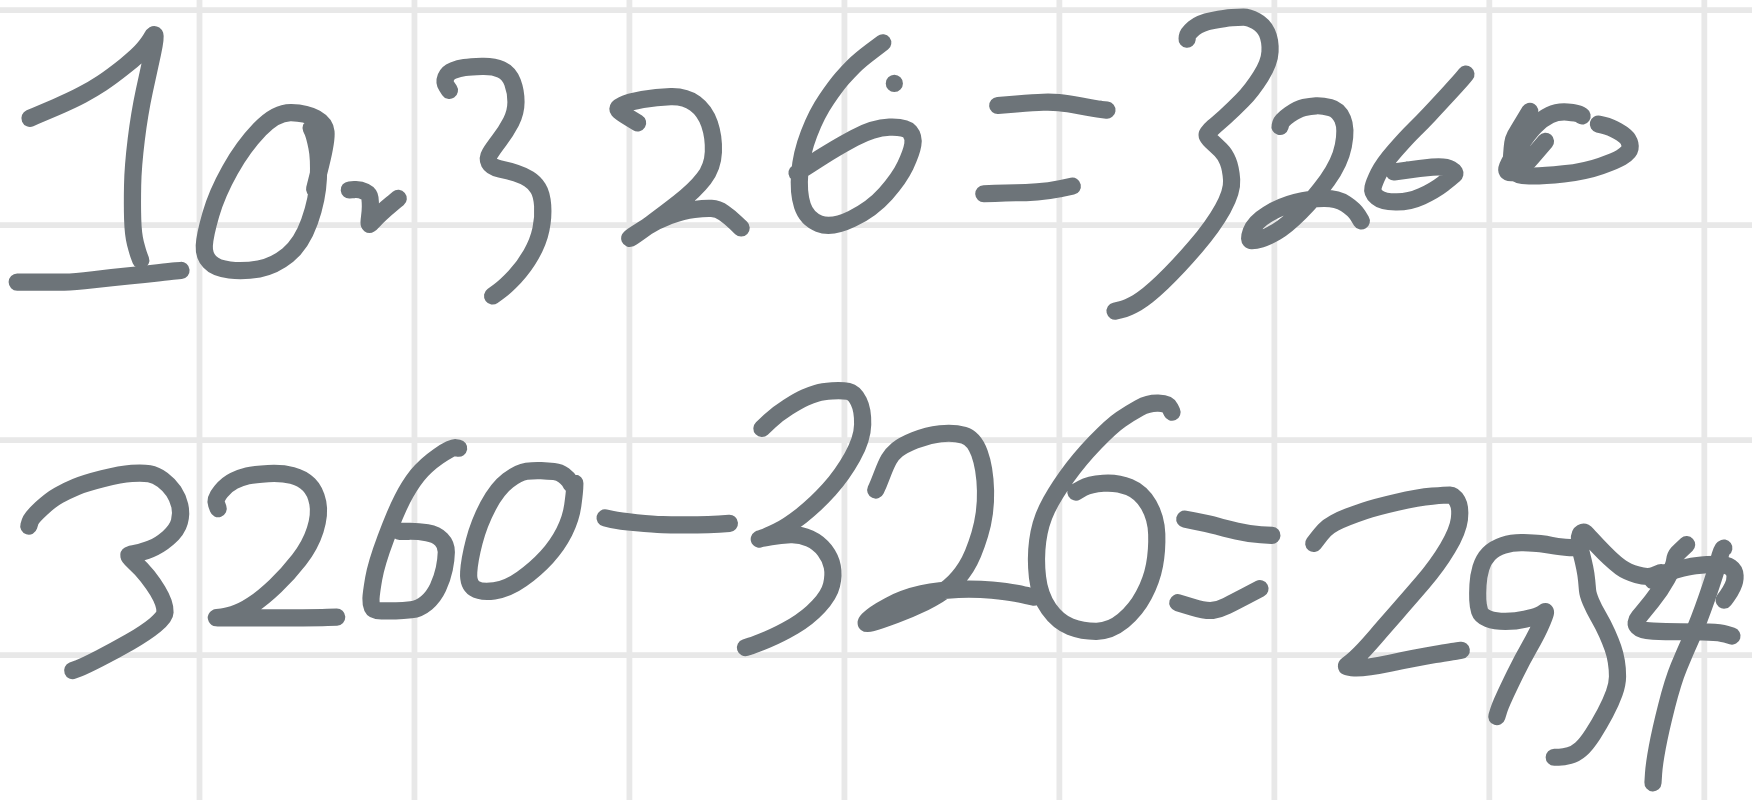 10×326=3260
3260-326=2954